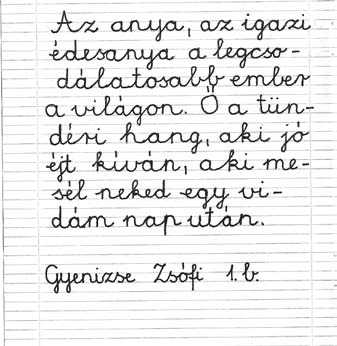 Az anya, az igazi
édesanya a legcso-
dálatosabb ember
a világon. Ő a tün-
déri hang, aki jó
éjt kíván, aki me-
sél neked egy vi-
dám nap után.
Gyenizse Zsófi 1. b.